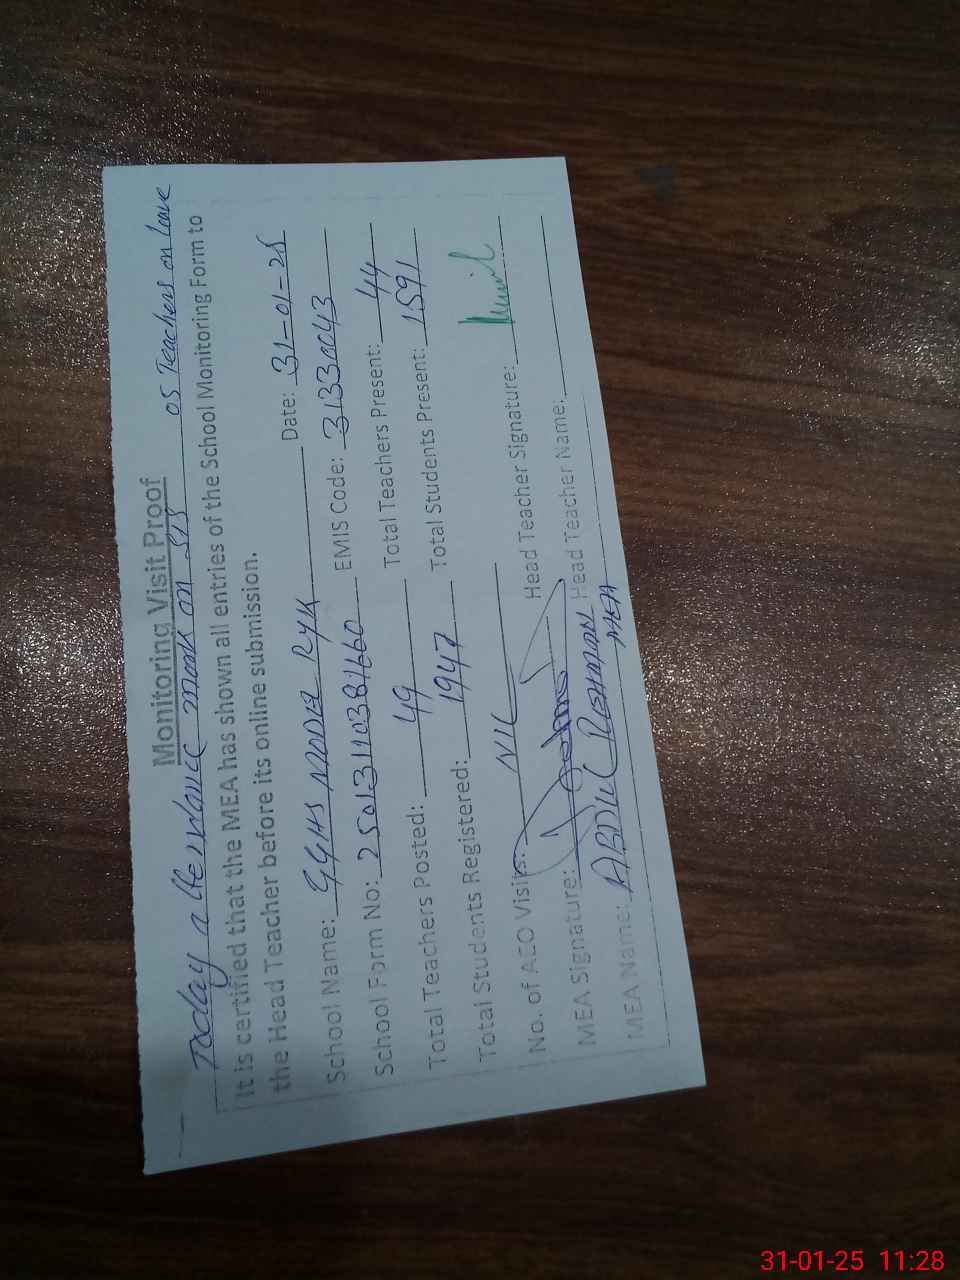 Monitoring Visit Proof
Today attendance mark on SIS 05 Teachers on leave
It is certified that the MEA has shown all entries of the School Monitoring Form to
the Head Teacher before its online submission.
School Name: GGHS MODEL RYK Date: 31-01-25
School Form No: EMIS Code: 31330043
Total Teachers Posted: 49 Total Teachers Present: 44
Total Students Registered: 1947 Total Students Present: 1591
No. of AEO Visits: NIL
MEA Signature: Head Teacher Signature:
MEA Name: ABDUL REHMAN Head Teacher Name:
MEA
31-01-25 11:28